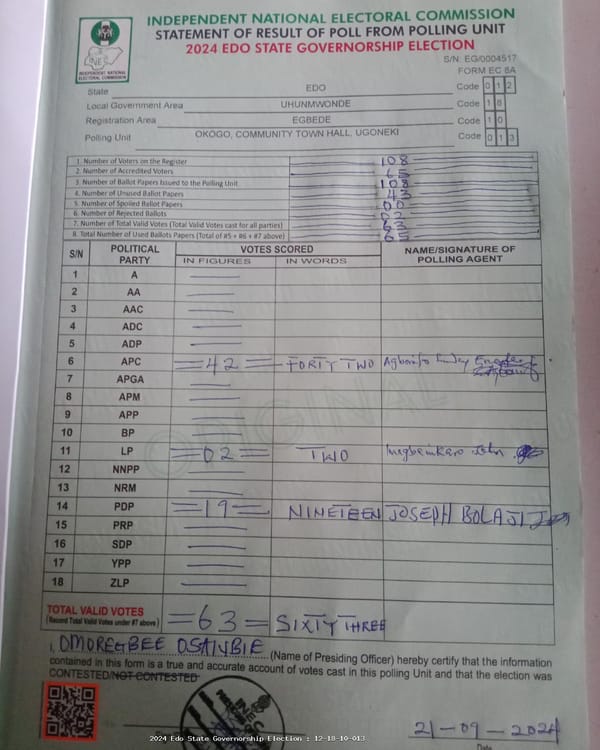 INDEPENDENT NATIONAL ELECTORAL COMMISSION
STATEMENT OF RESULT OF POLL FROM POLLING UNIT
2024 EDO STATE GOVERNORSHIP ELECTION
INEC
INDEPENDENT NATIONAL ELECTORAL COMMISSION
S/N: EG/0004517
FORM EC 8A
State EDO Code 0 1 2
Local Government Area UHUNMWONDE Code 1 8
Registration Area EGBEDE Code 1 0
Polling Unit OKOGO, COMMUNITY TOWN HALL, UGONEKI Code 0 1 3
1. Number of Voters on the Register 108
2. Number of Accredited Voters 65
3. Number of Ballot Papers Issued to the Polling Unit 108
4. Number of Unused Ballot Papers 43
5. Number of Spoiled Ballot Papers 00
6. Number of Rejected Ballots 02
7. Number of Total Valid Votes (Total Valid Votes cast for all parties) 63
8. Total Number of Used Ballots Papers (Total of #5 + #6 + #7 above) 65
S/N POLITICAL PARTY VOTES SCORED NAME/SIGNATURE OF POLLING AGENT
IN FIGURES IN WORDS
1 A
2 AA
3 AAC
4 ADC
5 ADP
6 APC =42= FORTY TWO
7 APGA
8 APM
9 APP
10 BP
11 LP =02= TWO John
12 NNPP
13 NRM
14 PDP =19= NINETEEN JOSEPH BOLAJI J
15 PRP
16 SDP
17 YPP
18 ZLP
ORIGINAL
TOTAL VALID VOTES =63= SIXTY THREE
(Record Total Valid Votes under #7 above)
I, OMOREGBEE (Name of Presiding Officer) hereby certify that the information
contained in this form is a true and accurate account of votes cast in this polling Unit and that the election was
CONTESTED/NOT CONTESTED
INEC
21-09-2024
Date
2024 Edo State Governorship Election : 12-18-10-013